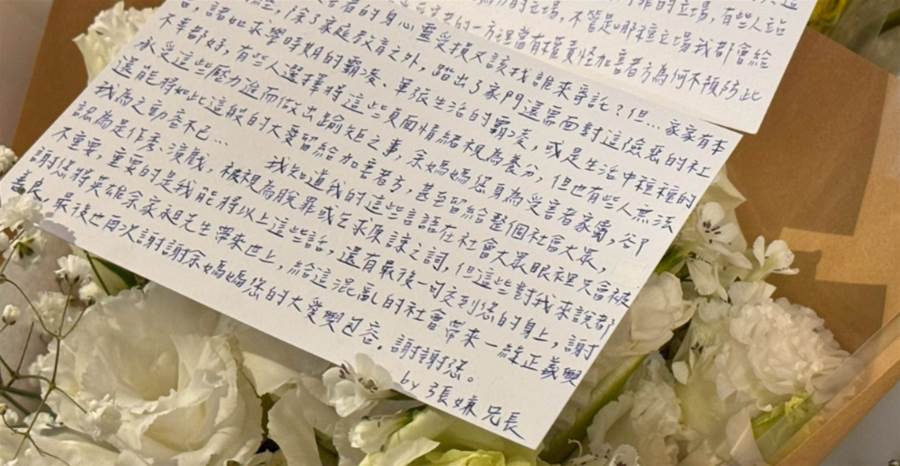 的立場,有些人站
的立場,不管是哪種立場我都會給
的一方裡當有權責怪加害者方為何不預防此
者的身心靈受損不該找誰來寄託?但…家家有本
些,除了家庭教育之外,踏出了家門還需面對這險惡的社
,諸如求學時期的霸凌、單張生活的霸凌,或是生活中種種的
不幸都好,有些人選擇將這些負面情緒視為養分,但也有些人無法
承受這些壓力進而做出踰矩之事,余媽媽您身為受害者家屬,卻
還能將如此這般的大愛留給加害者方,甚至留給整個社會大眾,
我為之動容不已… 我知道我的這些言語在社會大眾眼裡只會被
認為是作秀、演戲,被視為脫罪或乞求原諒之詞,但這些對我來說都
不重要,重要的是我能將以上這些話,還有最後一句交到您的身上,謝謝
謝您將英雄余家昶先生帶來世上,給這混亂的社會帶來一絲正義與
善良,最後也再次謝謝余媽媽您的大愛與包容。謝謝您。
by 張嫌兄長